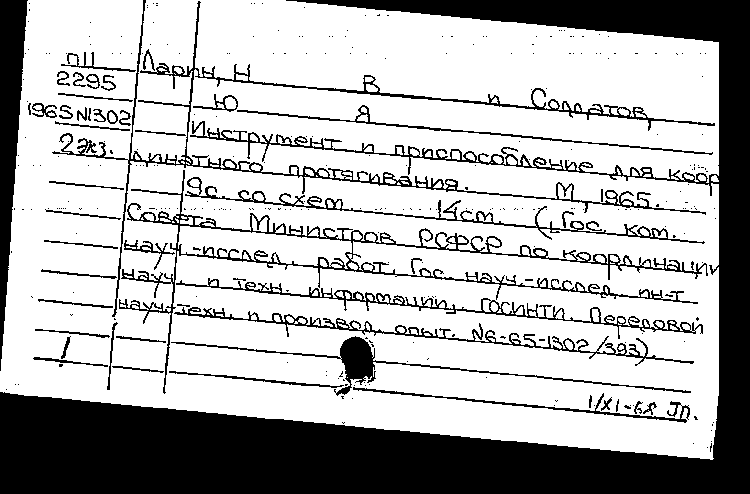 П11 Ларин, Н В и Солдатов,
2295 Ю Я
1965 N1302 Инструмент и приспособление для коор
2 экз. динатного протягивания. М, 1965.
9с. со схем. 14см. (Гос. ком.
Совета Министров РСФСР по координации
науч.-исслед. работ. Гос. науч.-исслед. ин-т
науч. и техн. информации, ГОСИНТИ. Передовой
науч.-техн. и производ. опыт. N6-65-1302/393).
1/XI-68